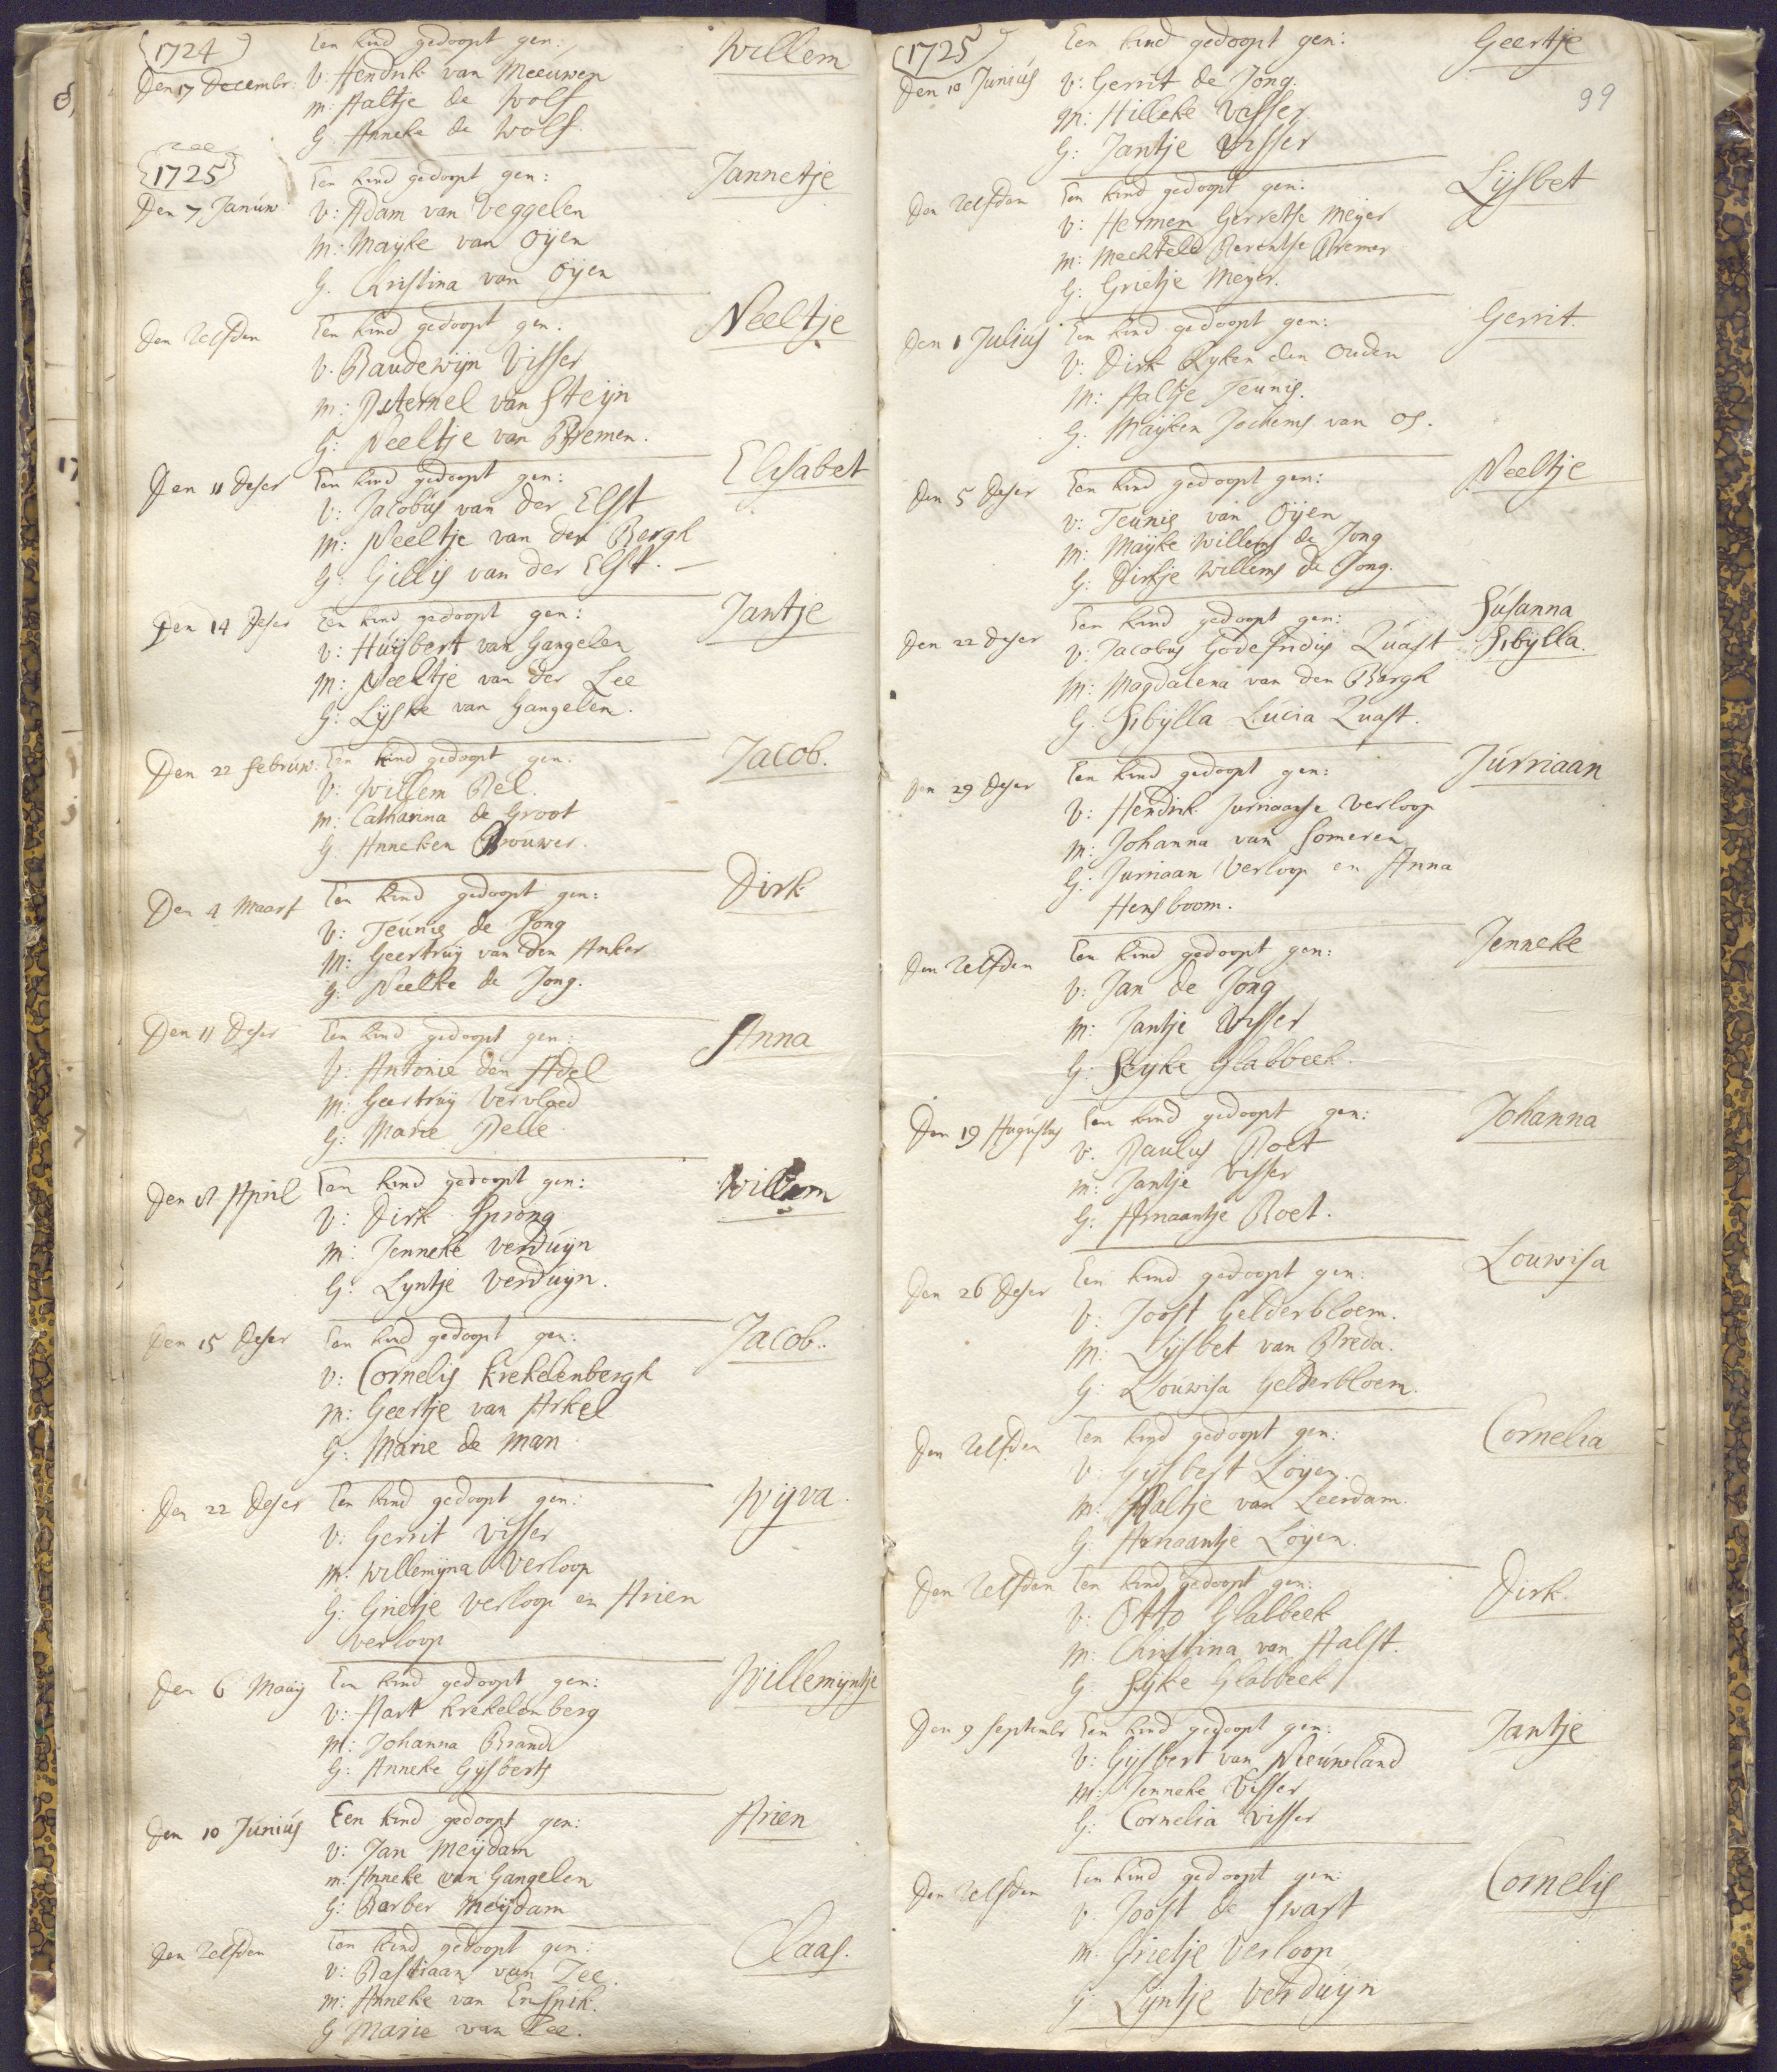 1724
Een kind gedoopt gen: Willem
Den 17 Decembr: V: Hendrik van Meeuwen
m: Aaltje de Wolf
G: Anneke de Wolf.
1725
Een kind gedoopt gen: Jannetje
Den 7 Januw V: Adam van Veggelen
m: Mayke van Oyen
G. Kristina van Oyen
den zelfden Een kind gedoopt gen: Neeltje
V. Baudewijn Visser
m: Peternel van Steyn
G: Neeltje van Bremen.
Den 11 deser Een kind gedoopt gen: Elisabet
V: Jacobus van der Elst
m: Neeltje van den Bergh
G: Gillis van der Elst.
Den 14 deser Een kind gedoopt gen: Jantje
V: Huijbert van Gangelen
m: Neeltje van der Lee
G: Lyske van Gangelen.
Den 22 februw: Een kind gedoopt gen: Jacob.
V: Willem Pel.
m: Catharina de Groot
G Anneken Brouwer.
Den 4 Maart Een kind gedoopt gen: Dirk
V: Teunis de Jong
M: Geertruy van den Anker
G: Neelke de Jong.
Den 11 deser Een kind gedoopt gen: Anna
V: Antonie den Adel
m: Geertruy Vervloed
G: Marie Pelle
Den April Een kind gedoopt gen: Willem
V: Dirk Sprong
m: Jenneke Verduyn
G: Lyntje Verduyn.
Den 15 deser Een kind gedoopt gen: Jacob.
V: Cornelis Krekelenbergh
m: Geertje van Arkel
G: Marie de Man
Den 22 deser Een kind gedoopt gen: Wyva
V: Gerrit Visser
m: Willemyna Verloop
G: Grietje Verloop en Arien
Verloop
Den 6 Maay Een kind gedoopt gen: Willemyntje
V: Aart Krekelenberg
m: Johanna Brand
G: Anneke Gysberts
Den 10 Junius Een kind gedoopt gen: Arien
V: Jan Meydam
m: Anneke van Gangelen
G: Barber Meydam
den zelfden Een kind gedoopt gen: Claas.
V: Bastiaan van Zee.
m: Anneke van Enspik.
G Marie van Zee.
1725
99
Een kind gedoopt gen: Geertje
Den 10 Junius V: Gerrit de Jong.
m: Hilleke Visser
G: Jantje Visser
den zelfden Een kind gedoopt gen: Lysbet
V: Hermen Gerretse Meyer
m: Mechteld Berentse Bremer
G: Grietje Meyer.
Den 1 Julius Een kind gedoopt gen: Gerrit.
V: Dirk Ryken den Ouden
m: Aaltje Teunis.
G: Mayken Jochems van Os.
den 5 deser Een kind gedoopt gen: Neeltje
V: Teunis van Oyen
m: Mayke Willems de Jong
G: Dirkje Willems de Jong.
Een kind gedoopt gen: Susanna
Den 22 deser V: Jacobus Godefridus Quast Sibylla.
m: Magdalena van den Bargh
G. Sibylla Lucia Quast.
den 29 deser Een kind gedoopt gen: Jurriaan
V: Hendrik Jurriaanse Verloop
m: Johanna van Someren
G: Jurriaan Verloop en Anna
Hensboom.
den zelfden Een kind gedoopt gen: Jenneke
V: Jan de Jong
m: Jantje Visser
G: Seyke Glabbeek.
Den 19 Augustus Een kind gedoopt gen: Johanna
V: Paulus Poet
m: Jantje Visser
G: Arnaantje Poet.
Den 26 deser Een kind gedoopt gen: Louwisa
V: Joost Gelderbloem.
m: Lysbet van Breda.
G: Louwisa Gelderbloem.
den zelfden Een kind gedoopt gen: Cornelia
V: Gysbert Loyen.
m: Aaltje van Leerdam.
G: Arnaantje Loyen.
den zelfden Een kind gedoopt gen: Dirk.
V: Otto Glabbeek
m: Christina van Aalst.
G Syke Glabbeek
Den 9 Septembr Een kind gedoopt gen: Jantje
V: Gysbert van Nieuwland
m: Jenneke Visser
G: Cornelia Visser
den zelfden Een kind gedoopt gen: Cornelis
V: Joost de Swart
m: Grietje Verloop
G: Lyntje Verduyn